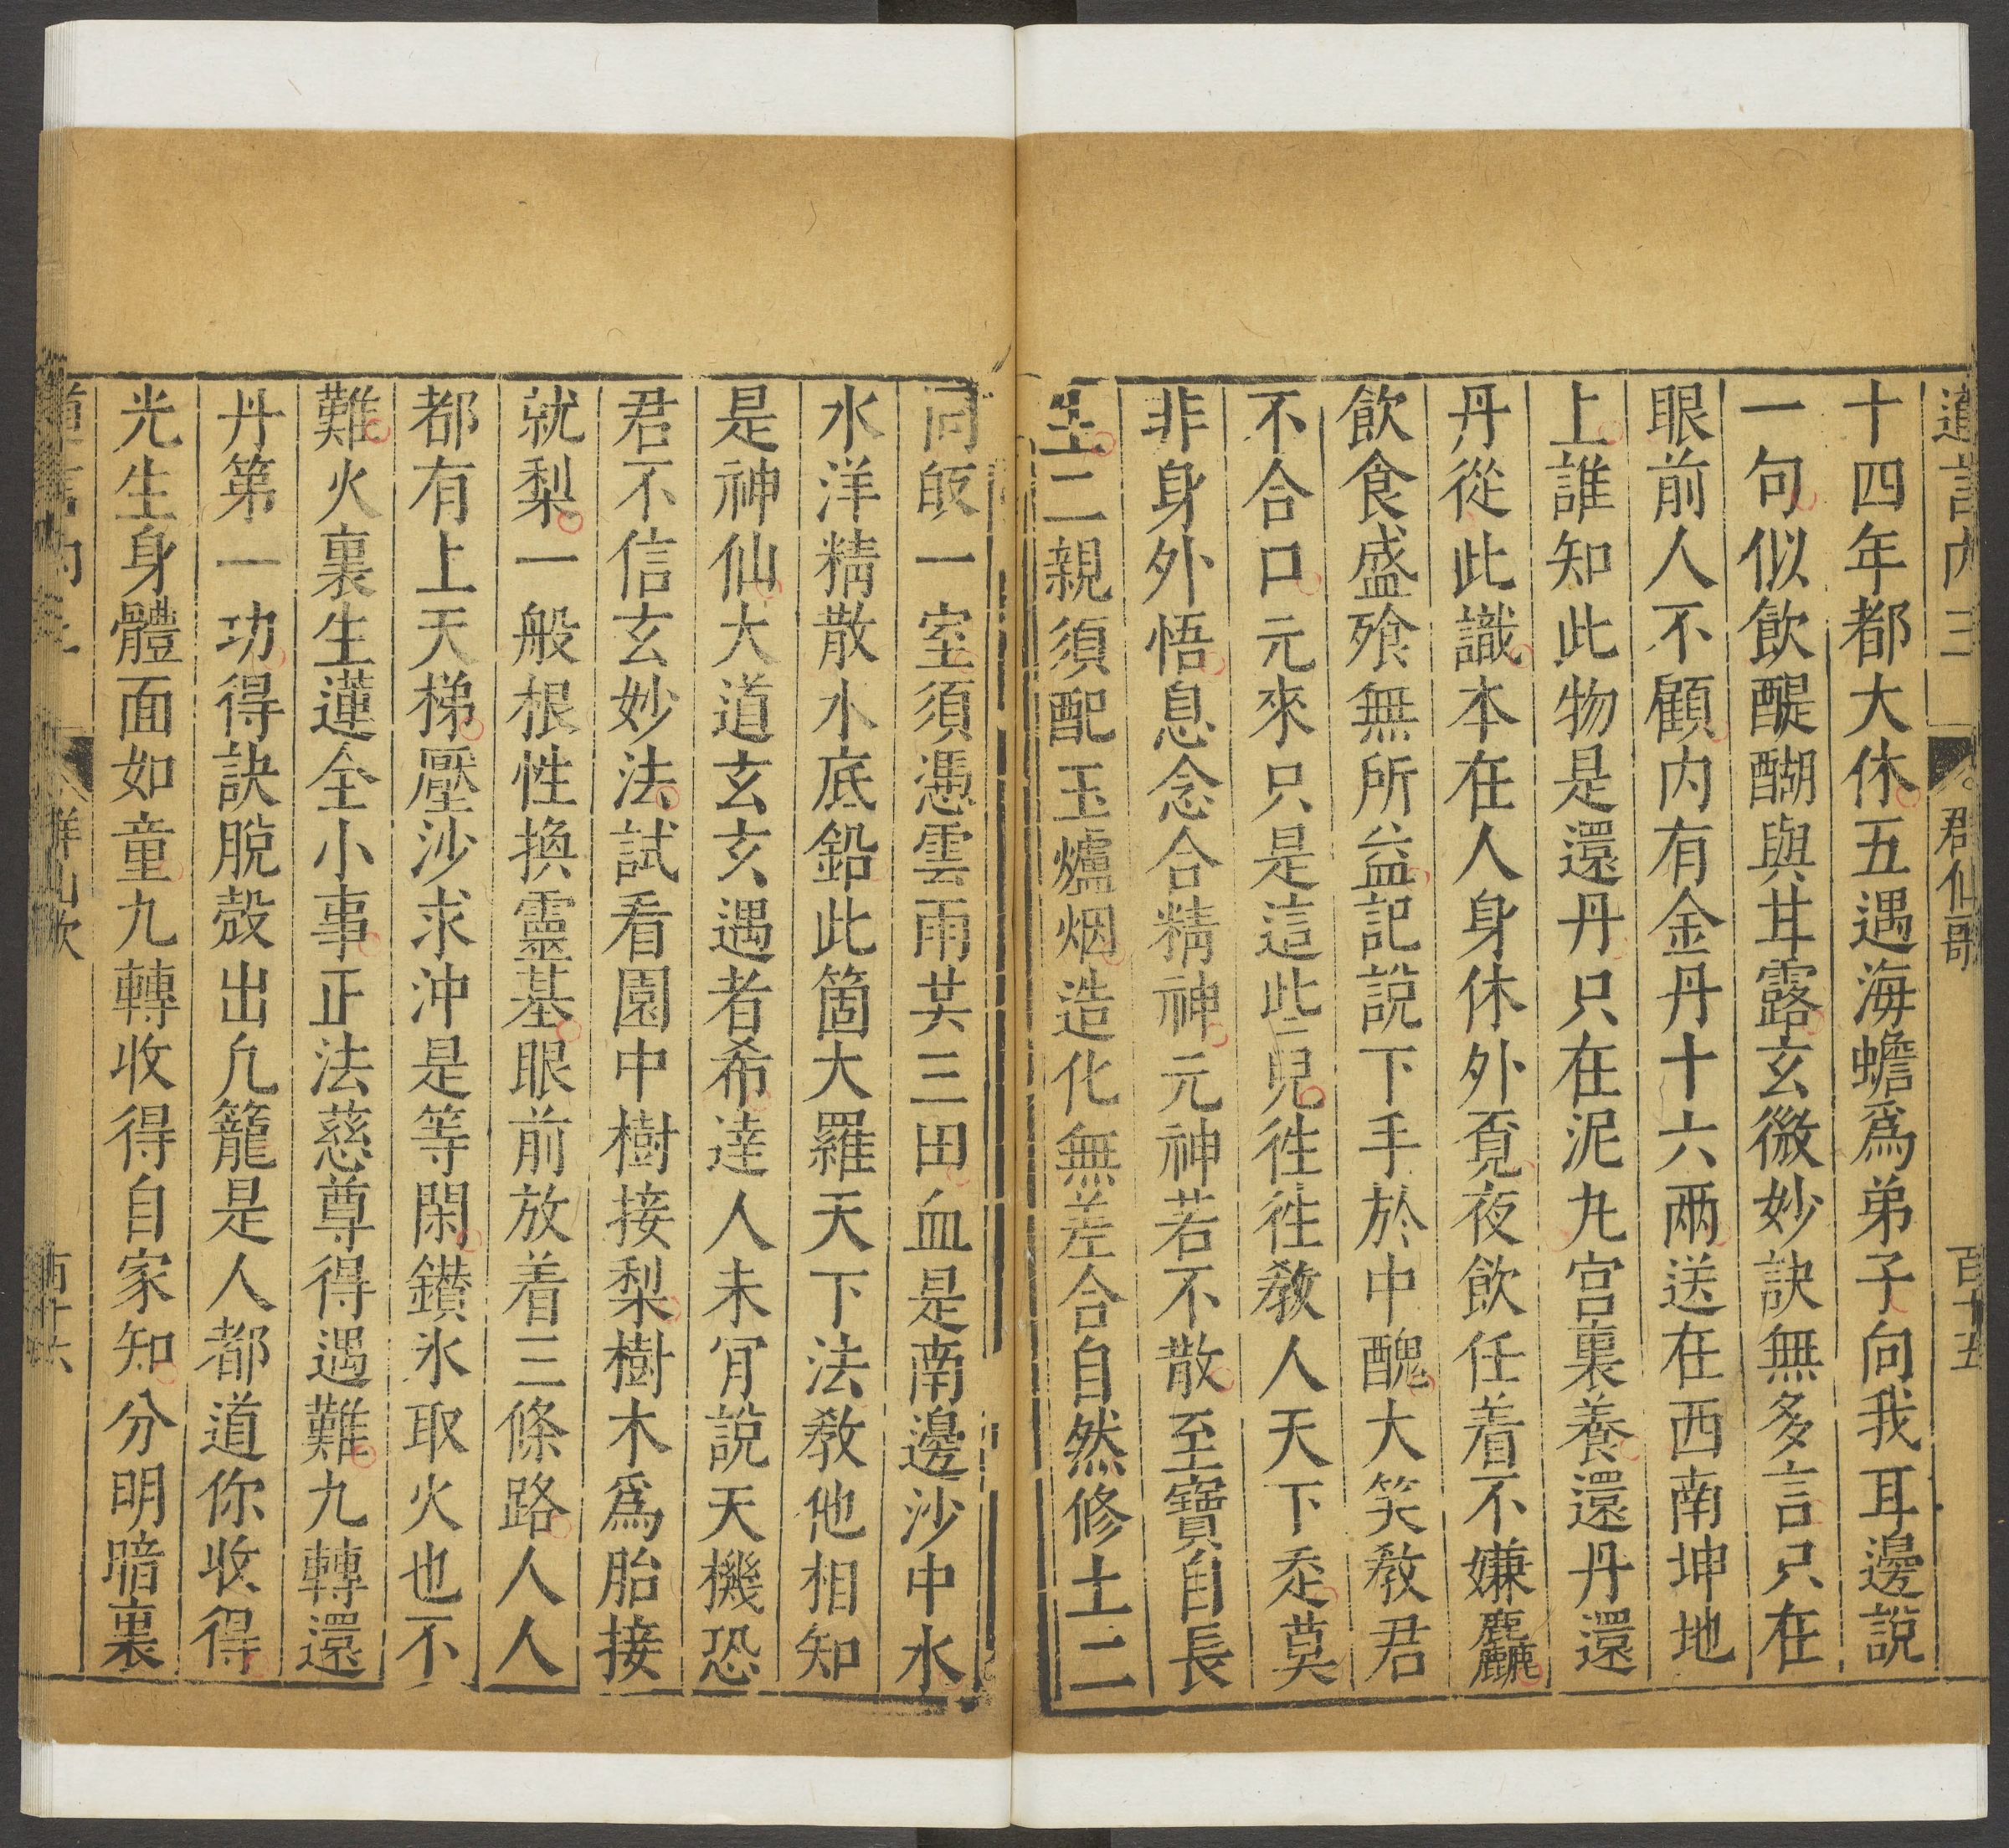 道言內三 群仙歌 百十五
十四年都大休五遇海蟾爲弟子向我耳邊說
一句似飲醍醐與甘露玄微妙訣無多言只在
眼前人不顧內有金丹十六兩送在西南坤地
上誰知此物是還丹只在泥丸宮裏養還丹還
丹從此識本在人身休外覓夜飲任着不嫌麤
飲食盛飱無所益記說下手於中醜大笑教君
不合口元來只是這些兒徃徃教人天下走莫
非身外悟息念合精神元神若不散至寶自長
生二親須配玉爐烟造化無差合自然修土二
同皈一室須憑雲雨共三田血是南邊沙中水
水洋精散水底鉛此箇大羅天下法教他相知
是神仙大道玄玄遇者希達人未肎說天機恐
君不信玄妙法試看園中樹接梨樹木爲胎接
就梨一般根性換靈基眼前放着三條路人人
都有上天梯壓沙求沖是等閑鑚氷取火也不
難火裏生蓮全小事正法慈尊得遇難九轉還
丹第一功得訣脫殼出凢籠是人都道你收得
光生身體面如童九轉收得自家知分明暗裏
道言內三 群仙歌 百十六